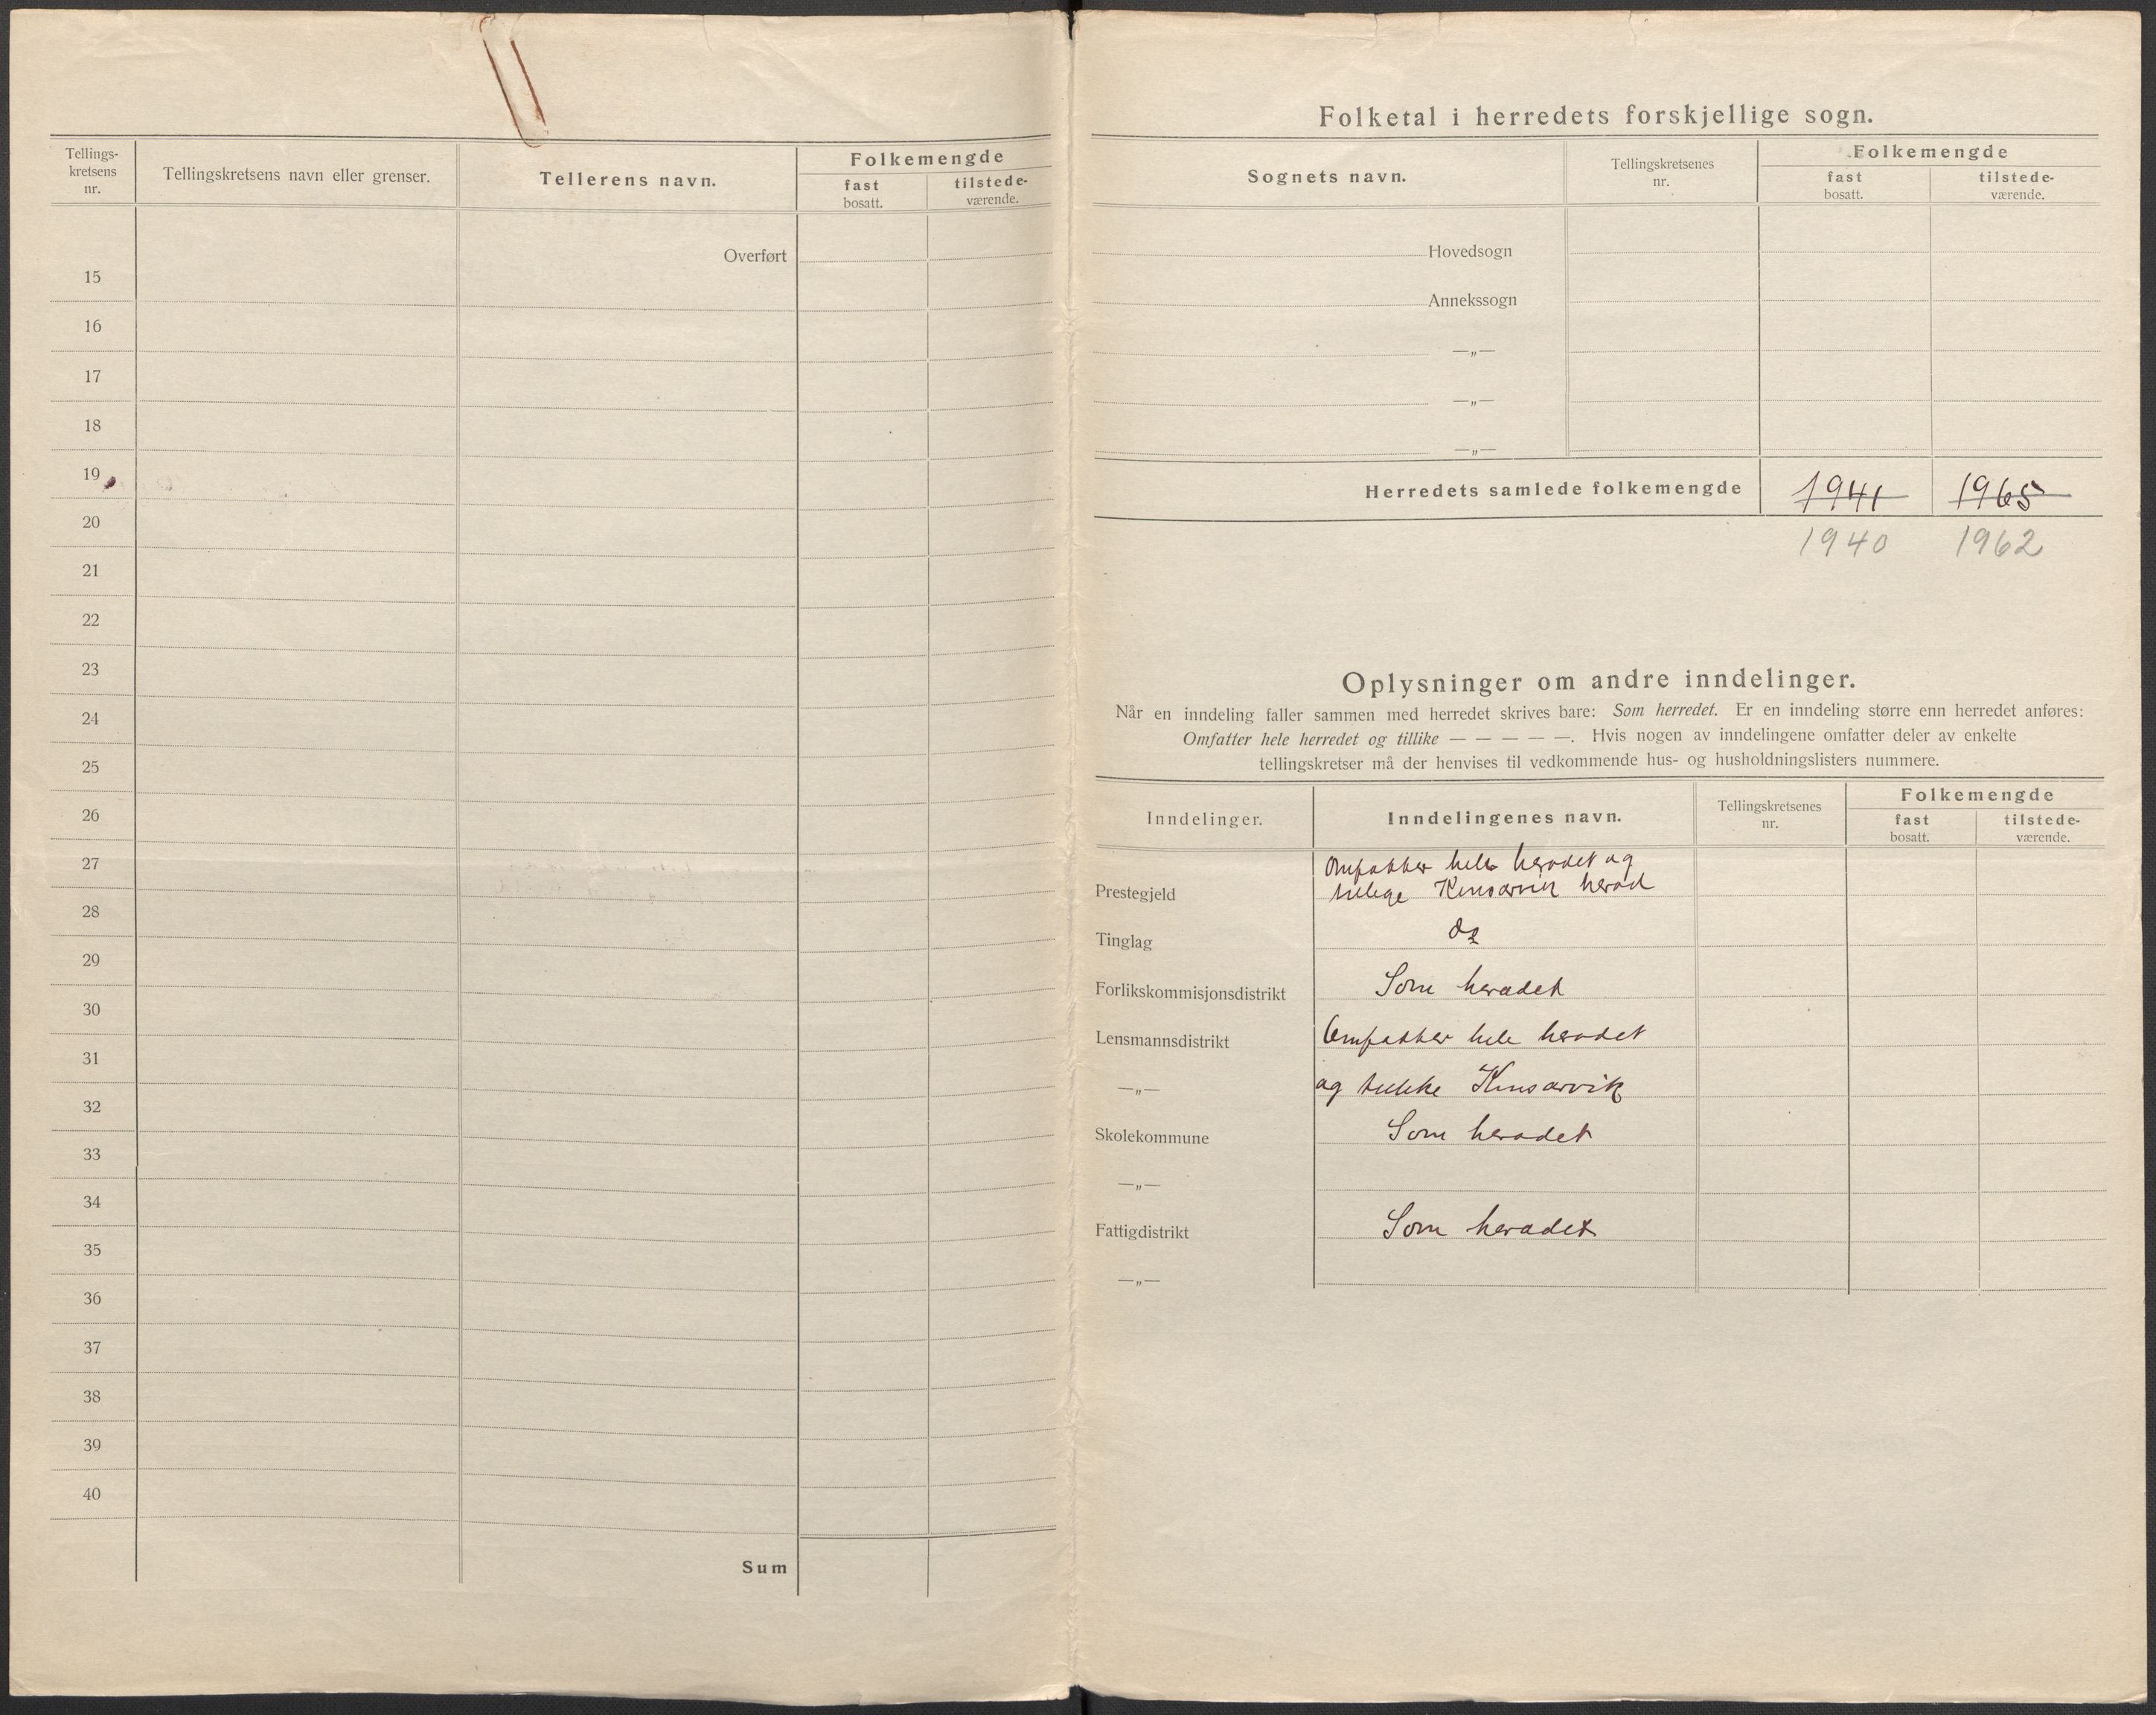 Tellings-
kretsens
nr.
Tellingskretsens navn eller grenser.
Tellerens navn.
Folkemengde
fast
bosatt.
tilstede-
værende.
Overført
15
16
17
18
19
20
21
22
23
24
25
26
27
28
29
30
31
32
33
34
35
36
37
38
39
40
Sum
Folketal i herredets forskjellige sogn.
Sognets navn.
Tellingskretsenes
nr.
Folkemengde
fast
bosatt.
tilstede-
værende.
Hovedsogn
Annekssogn
—„—
—„—
—„—
Herredets samlede folkemengde 1941 1965
1940 1962
Oplysninger om andre inndelinger.
Når en inndeling faller sammen med herredet skrives bare: Som herredet. Er en inndeling større enn herredet anføres:
Omfatter hele herredet og tillike — — — — —. Hvis nogen av inndelingene omfatter deler av enkelte
tellingskretser må der henvises til vedkommende hus- og husholdningslisters nummere.
Inndelinger.
Inndelingenes navn.
Tellingskretsenes
nr.
Folkemengde
fast
bosatt.
tilstede-
værende.
Omfatter hele heradet og
Prestegjeld Kinsarvik herad
Tinglag
Forlikskommisjonsdistrikt Som heradet
Lensmannsdistrikt Omfatter hele heradet
—„— og tillike Kinsarvik
Skolekommune Som heradet
—„—
Fattigdistrikt Som heradet
—„—